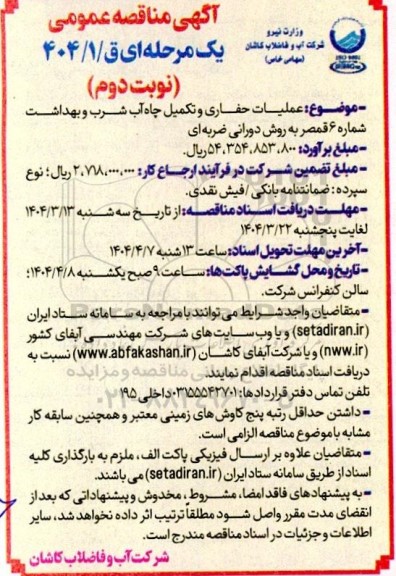 آگهی مناقصه عمومی
یک مرحله‌ای ق/۴۰۴/۱
(نوبت دوم)
وزارت نیرو
شرکت آب و فاضلاب کاشان
(سهامی خاص)
-موضوع: عملیات حفاری و تکمیل چاه آب شرب و بهداشت
شماره ۶ قمصر به روش دورانی ضربه‌ای
-مبلغ برآورد: ۵۴،۳۵۴،۸۵۳،۸۰۰ ریال.
-مبلغ تضمین شرکت در فرآیند ارجاع کار: ۲،۷۱۸،۰۰۰،۰۰۰ ریال؛ نوع
سپرده: ضمانتنامه بانکی /فیش نقدی.
-مهلت دریافت اسناد مناقصه: از تاریخ سه شنبه ۱۴۰۴/۳/۱۳
لغایت پنجشنبه ۱۴۰۴/۳/۲۲
-آخرین مهلت تحویل اسناد: ساعت ۱۳ شنبه ۱۴۰۴/۴/۷
-تاریخ و محل گشایش پاکت‌ها: ساعت ۹ صبح یکشنبه ۱۴۰۴/۴/۸؛
سالن کنفرانس شرکت.
-متقاضیان واجد شرایط می‌توانند با مراجعه به سامانه ستاد ایران
(setadiran.ir) و یا وب سایت‌های شرکت مهندسی آبفای کشور
(nww.ir) و یا شرکت آبفای کاشان (www.abfakashan.ir) نسبت به
دریافت اسناد مناقصه اقدام نمایند.
تلفن تماس دفتر قراردادها: ۰۳۱۵۵۵۴۲۷۰۱ داخلی ۱۹۵
-داشتن حداقل رتبه پنج کاوش‌های زمینی معتبر و همچنین سابقه کار
مشابه با موضوع مناقصه الزامی است.
-متقاضیان علاوه بر ارسال فیزیکی پاکت الف، ملزم به بارگذاری کلیه
اسناد از طریق سامانه ستاد ایران (setadiran.ir) می‌باشند.
-به پیشنهادهای فاقد امضا، مشروط، مخدوش و پیشنهاداتی که بعد از
انقضای مدت مقرر واصل شود مطلقا ترتیب اثر داده نخواهد شد، سایر
اطلاعات و جزئیات در اسناد مناقصه مندرج است.
شرکت آب و فاضلاب کاشان